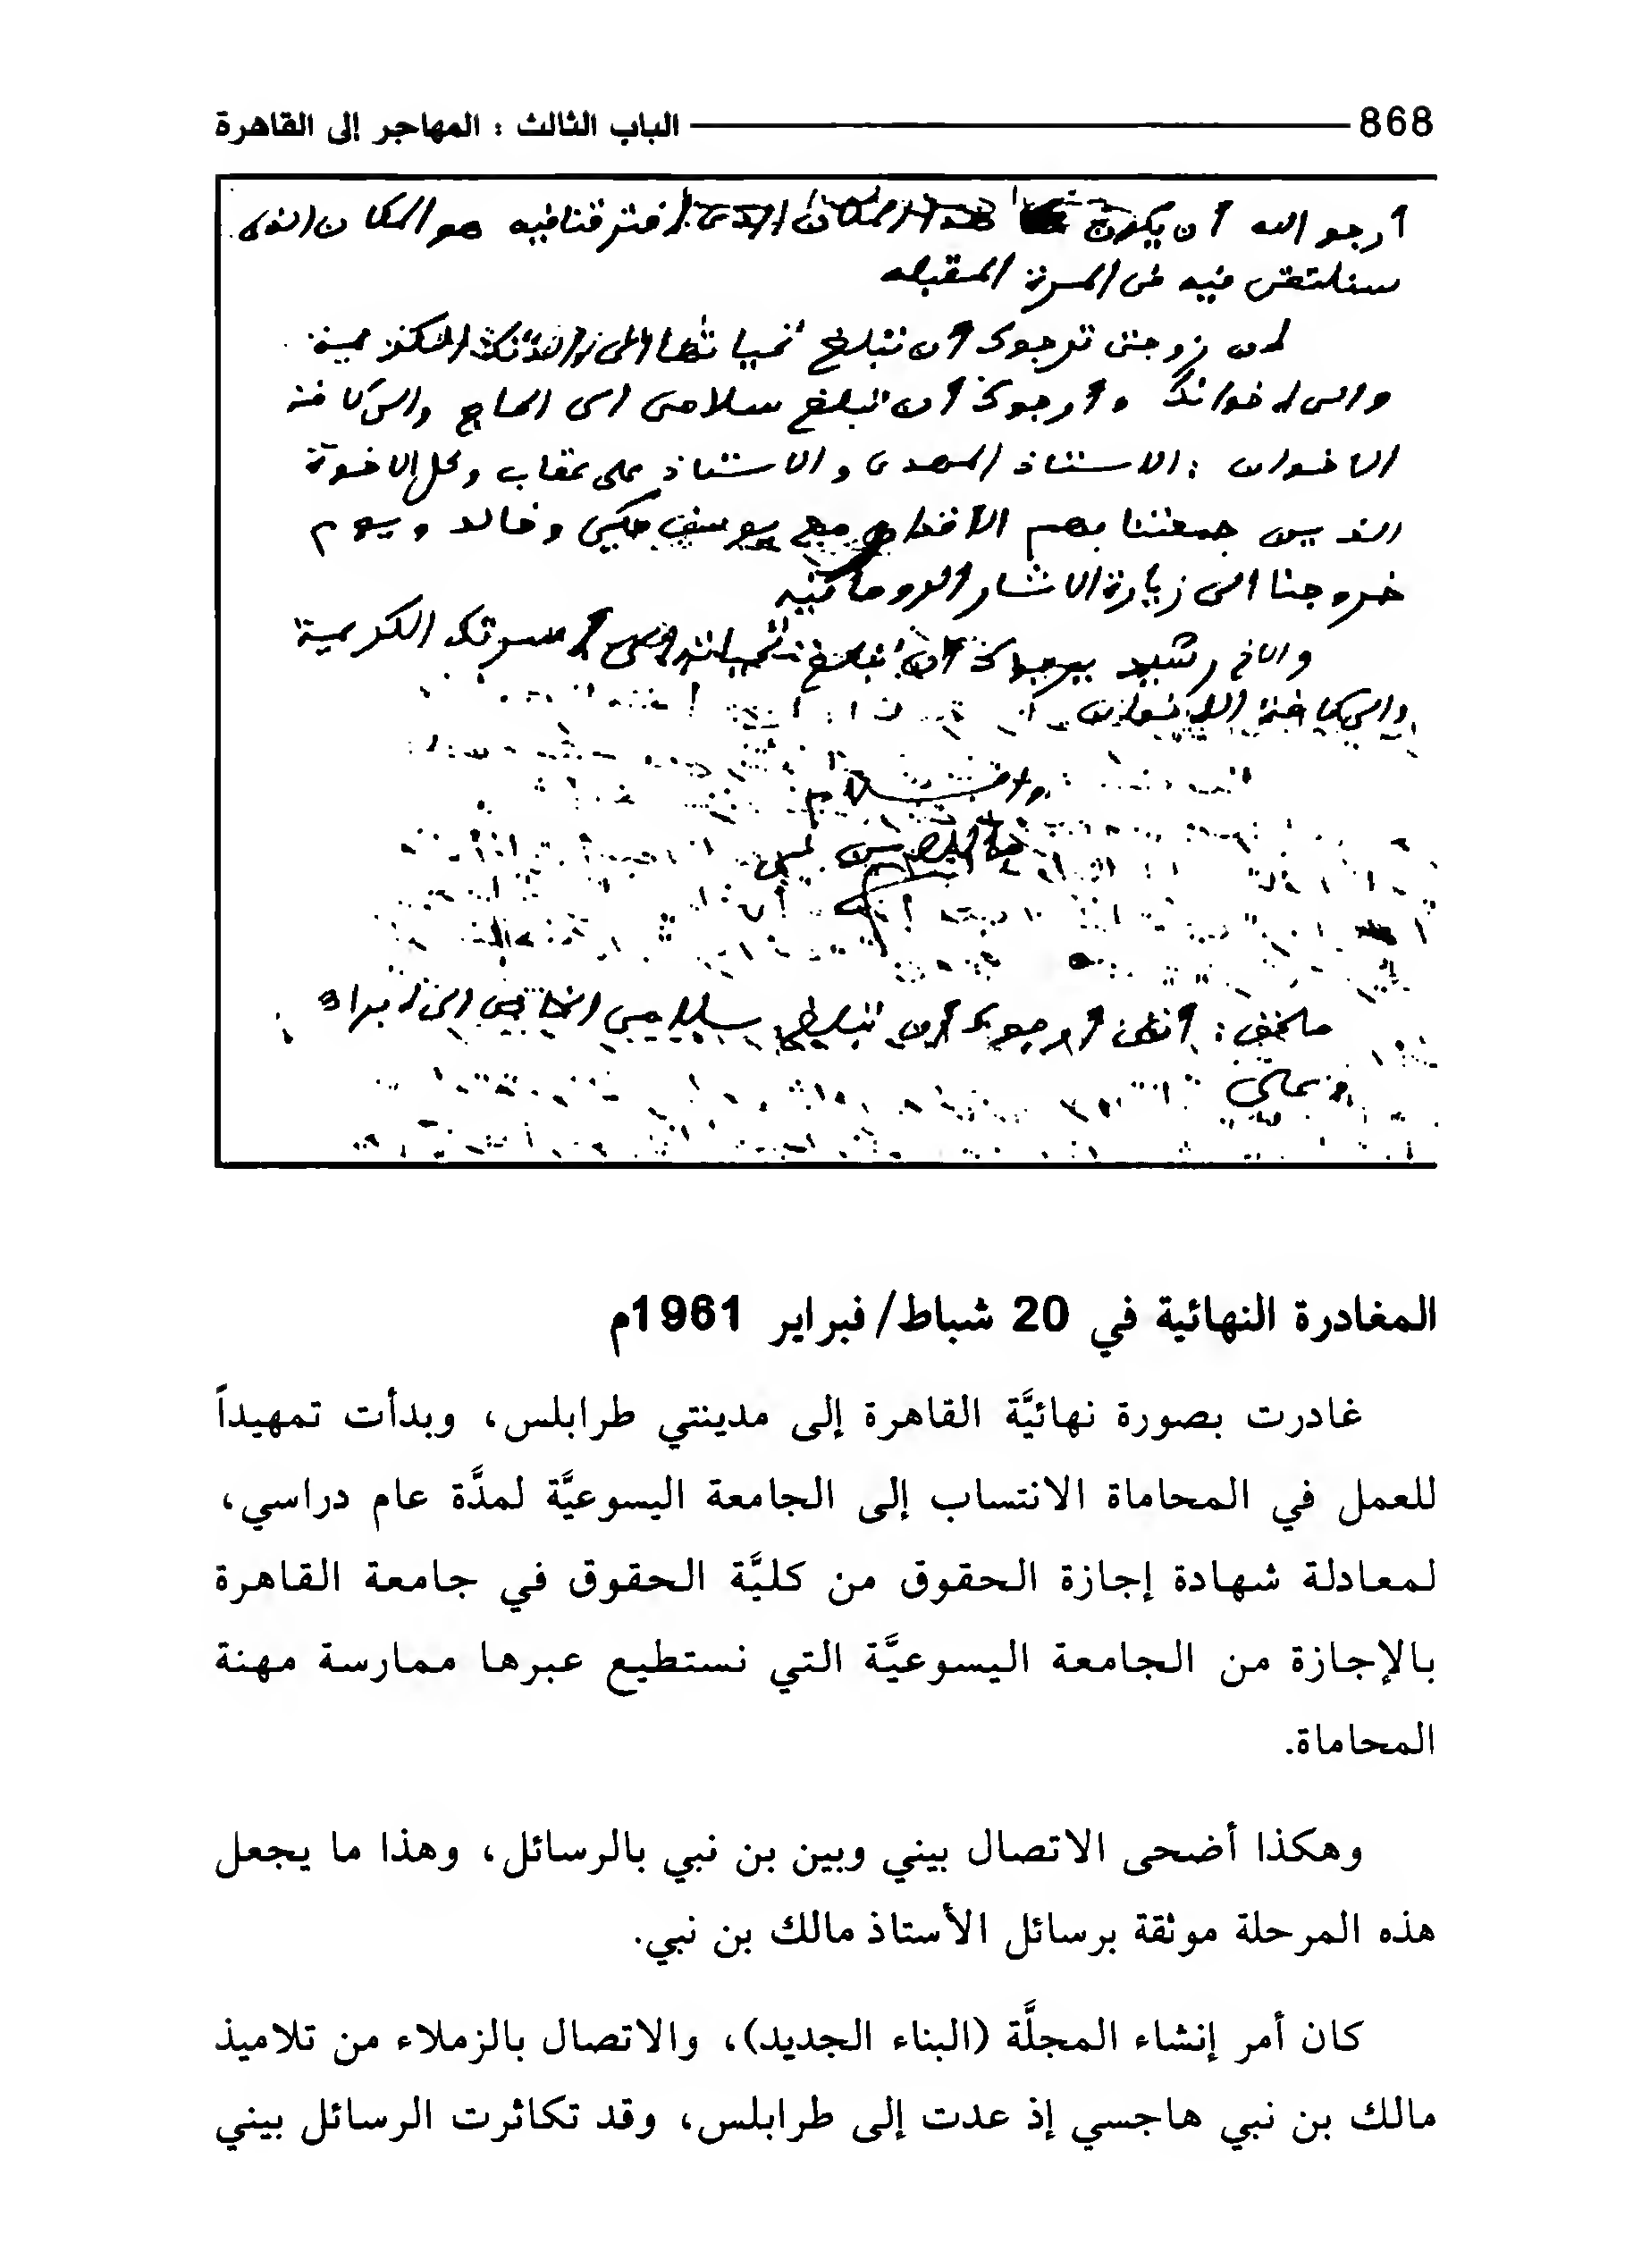 868 الباب الثالث : المهاجر إلى القاهرة
أرجو الله أن يكون هذا المكان الذى افترقنا فيه هو المكان الذى
سنلتقى فيه فى المرة المقبله
ان زوجتى ترجوك أن تبلغ تحياتها الى والدتك الكريمة
والى اخوانك وأرجوك أن تبلغ سلامى الى الحاج والى كافة
الاخوان : الاستاذ المهدى والاستاذ على عقاب وكل الاخوة
الذين جمعتنا بهم الأقدار مع يوسف مكي وخالد ويوم
خروجنا الى زيارة الاثار الرومانيه
والاخ رشيد يرجوك أن تبلغ تحياته الى أسرتك الكريمة
والى كافة الاخوان
والسلام
ملحق : أننى أرجوك أن تبلغ سلامى الخاص الى
المغادرة النهائية في 20 شباط/فبراير 1961م
غادرت بصورة نهائيَّة القاهرة إلى مدينتي طرابلس، وبدأت تمهيداً
للعمل في المحاماة الانتساب إلى الجامعة اليسوعيَّة لمدَّة عام دراسي،
لمعادلة شهادة إجازة الحقوق من كليَّة الحقوق في جامعة القاهرة
بالإجازة من الجامعة اليسوعيَّة التي نستطيع عبرها ممارسة مهنة
المحاماة.
وهكذا أضحى الاتصال بيني وبين بن نبي بالرسائل، وهذا ما يجعل
هذه المرحلة موثقة برسائل الأستاذ مالك بن نبي.
كان أمر إنشاء المجلَّة (البناء الجديد)، والاتصال بالزملاء من تلاميذ
مالك بن نبي هاجسي إذ عدت إلى طرابلس، وقد تكاثرت الرسائل بيني